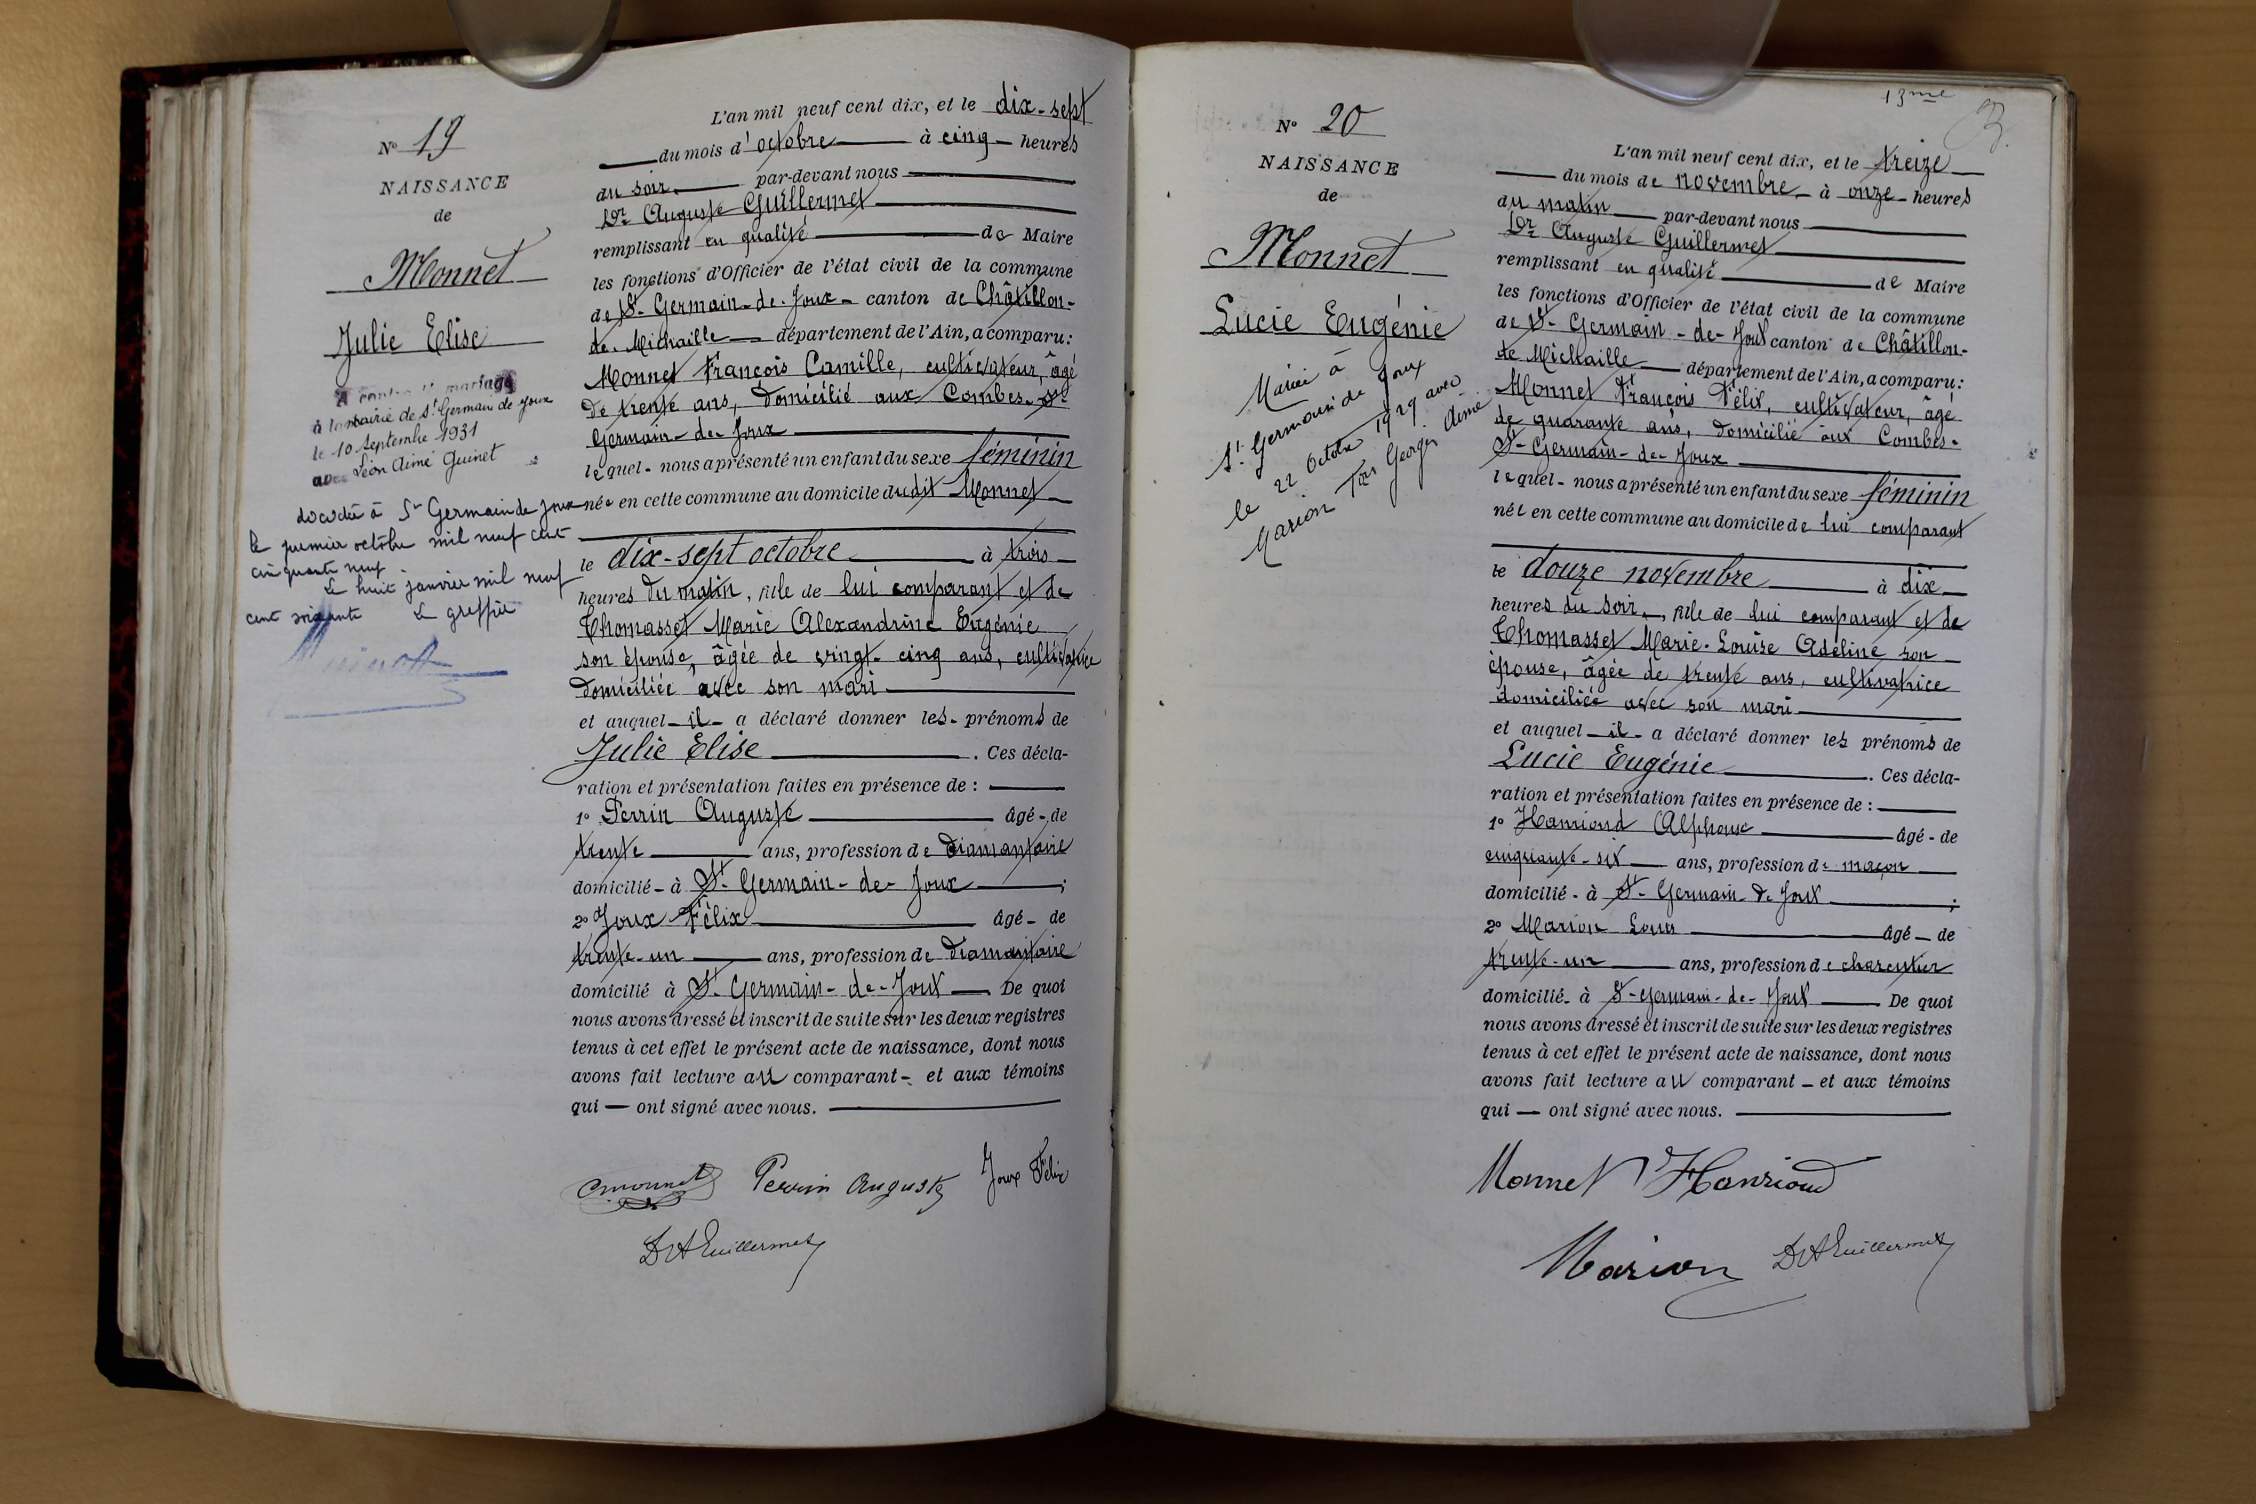 N° 19
NAISSANCE
de
Monnet
Julie Elise
A contracté mariage
à la mairie de St Germain de Joux
le 10 Septembre 1931
avec Léon Aimé Guinet
décédée à St Germain de Joux
le premier octobre mil neuf cent
cinquante neuf
Le huit janvier mil neuf
cent soixante Le greffier
L'an mil neuf cent dix, et le dix-sept
du mois d'octobre à cinq heures
du soir, par-devant nous
Dr Auguste Guillermet
remplissant en qualité de Maire
les fonctions d'Officier de l'état civil de la commune
de St-Germain-de-Joux canton de Châtillon-
de-Michaille département de l'Ain, a comparu:
Monnet François Camille, cultivateur, âgé
de trente ans, domicilié aux Combes-St
Germain-de-Joux
lequel nous a présenté un enfant du sexe féminin
née en cette commune au domicile dudit Monnet
le dix-sept octobre à trois
heures du matin, fille de lui comparant et de
Thomasset Marie Alexandrine Eugénie
son épouse, âgée de vingt-cinq ans, cultivatrice
domiciliée avec son mari
et auquel il a déclaré donner les prénoms de
Julie Elise. Ces décla-
ration et présentation faites en présence de :
1° Perrin Auguste âgé de
trente ans, profession de diamantaire
domicilié à St-Germain-de-Joux;
2° Joux Félix âgé de
trente-un ans, profession de diamantaire
domicilié à St-Germain-de-Joux De quoi
nous avons dressé et inscrit de suite sur les deux registres
tenus à cet effet le présent acte de naissance, dont nous
avons fait lecture au comparant et aux témoins
qui ont signé avec nous.
Cmonnet Perrin Auguste Joux Félix
Dr A Guillermet
13me
N° 20
NAISSANCE
de
Monnet
Lucie Eugénie
Mariée à
St. Germain de Joux
le 22 Octobre 1929 avec
Marion Frs Georges Aimé
L'an mil neuf cent dix, et le treize
du mois de novembre à onze heures
du matin par-devant nous
Dr Auguste Guillermet
remplissant en qualité de Maire
les fonctions d'Officier de l'état civil de la commune
de St-Germain-de-Joux canton de Châtillon-
de Michaille département de l'Ain, a comparu:
Monnet François Félix, cultivateur, âgé
de quarante ans, domicilié aux Combes-
St-Germain-de-Joux
lequel nous a présenté un enfant du sexe féminin
née en cette commune au domicile de lui comparant
le douze novembre à dix
heures du soir, fille de lui comparant et de
Thomasset Marie-Louise Adeline son
épouse, âgée de trente ans, cultivatrice
domiciliée avec son mari
et auquel il a déclaré donner les prénoms de
Lucie Eugénie. Ces décla-
ration et présentation faites en présence de :
1° Hanriond Alphonse âgé de
cinquante-six ans, profession de maçon
domicilié à St-Germain-de Joux;
2° Marion Louis âgé de
trente-un ans, profession de charentier
domicilié à St-Germain-de-Joux De quoi
nous avons dressé et inscrit de suite sur les deux registres
tenus à cet effet le présent acte de naissance, dont nous
avons fait lecture au comparant et aux témoins
qui ont signé avec nous.
Monnet Hanriond
Marion Dr A Guillermet